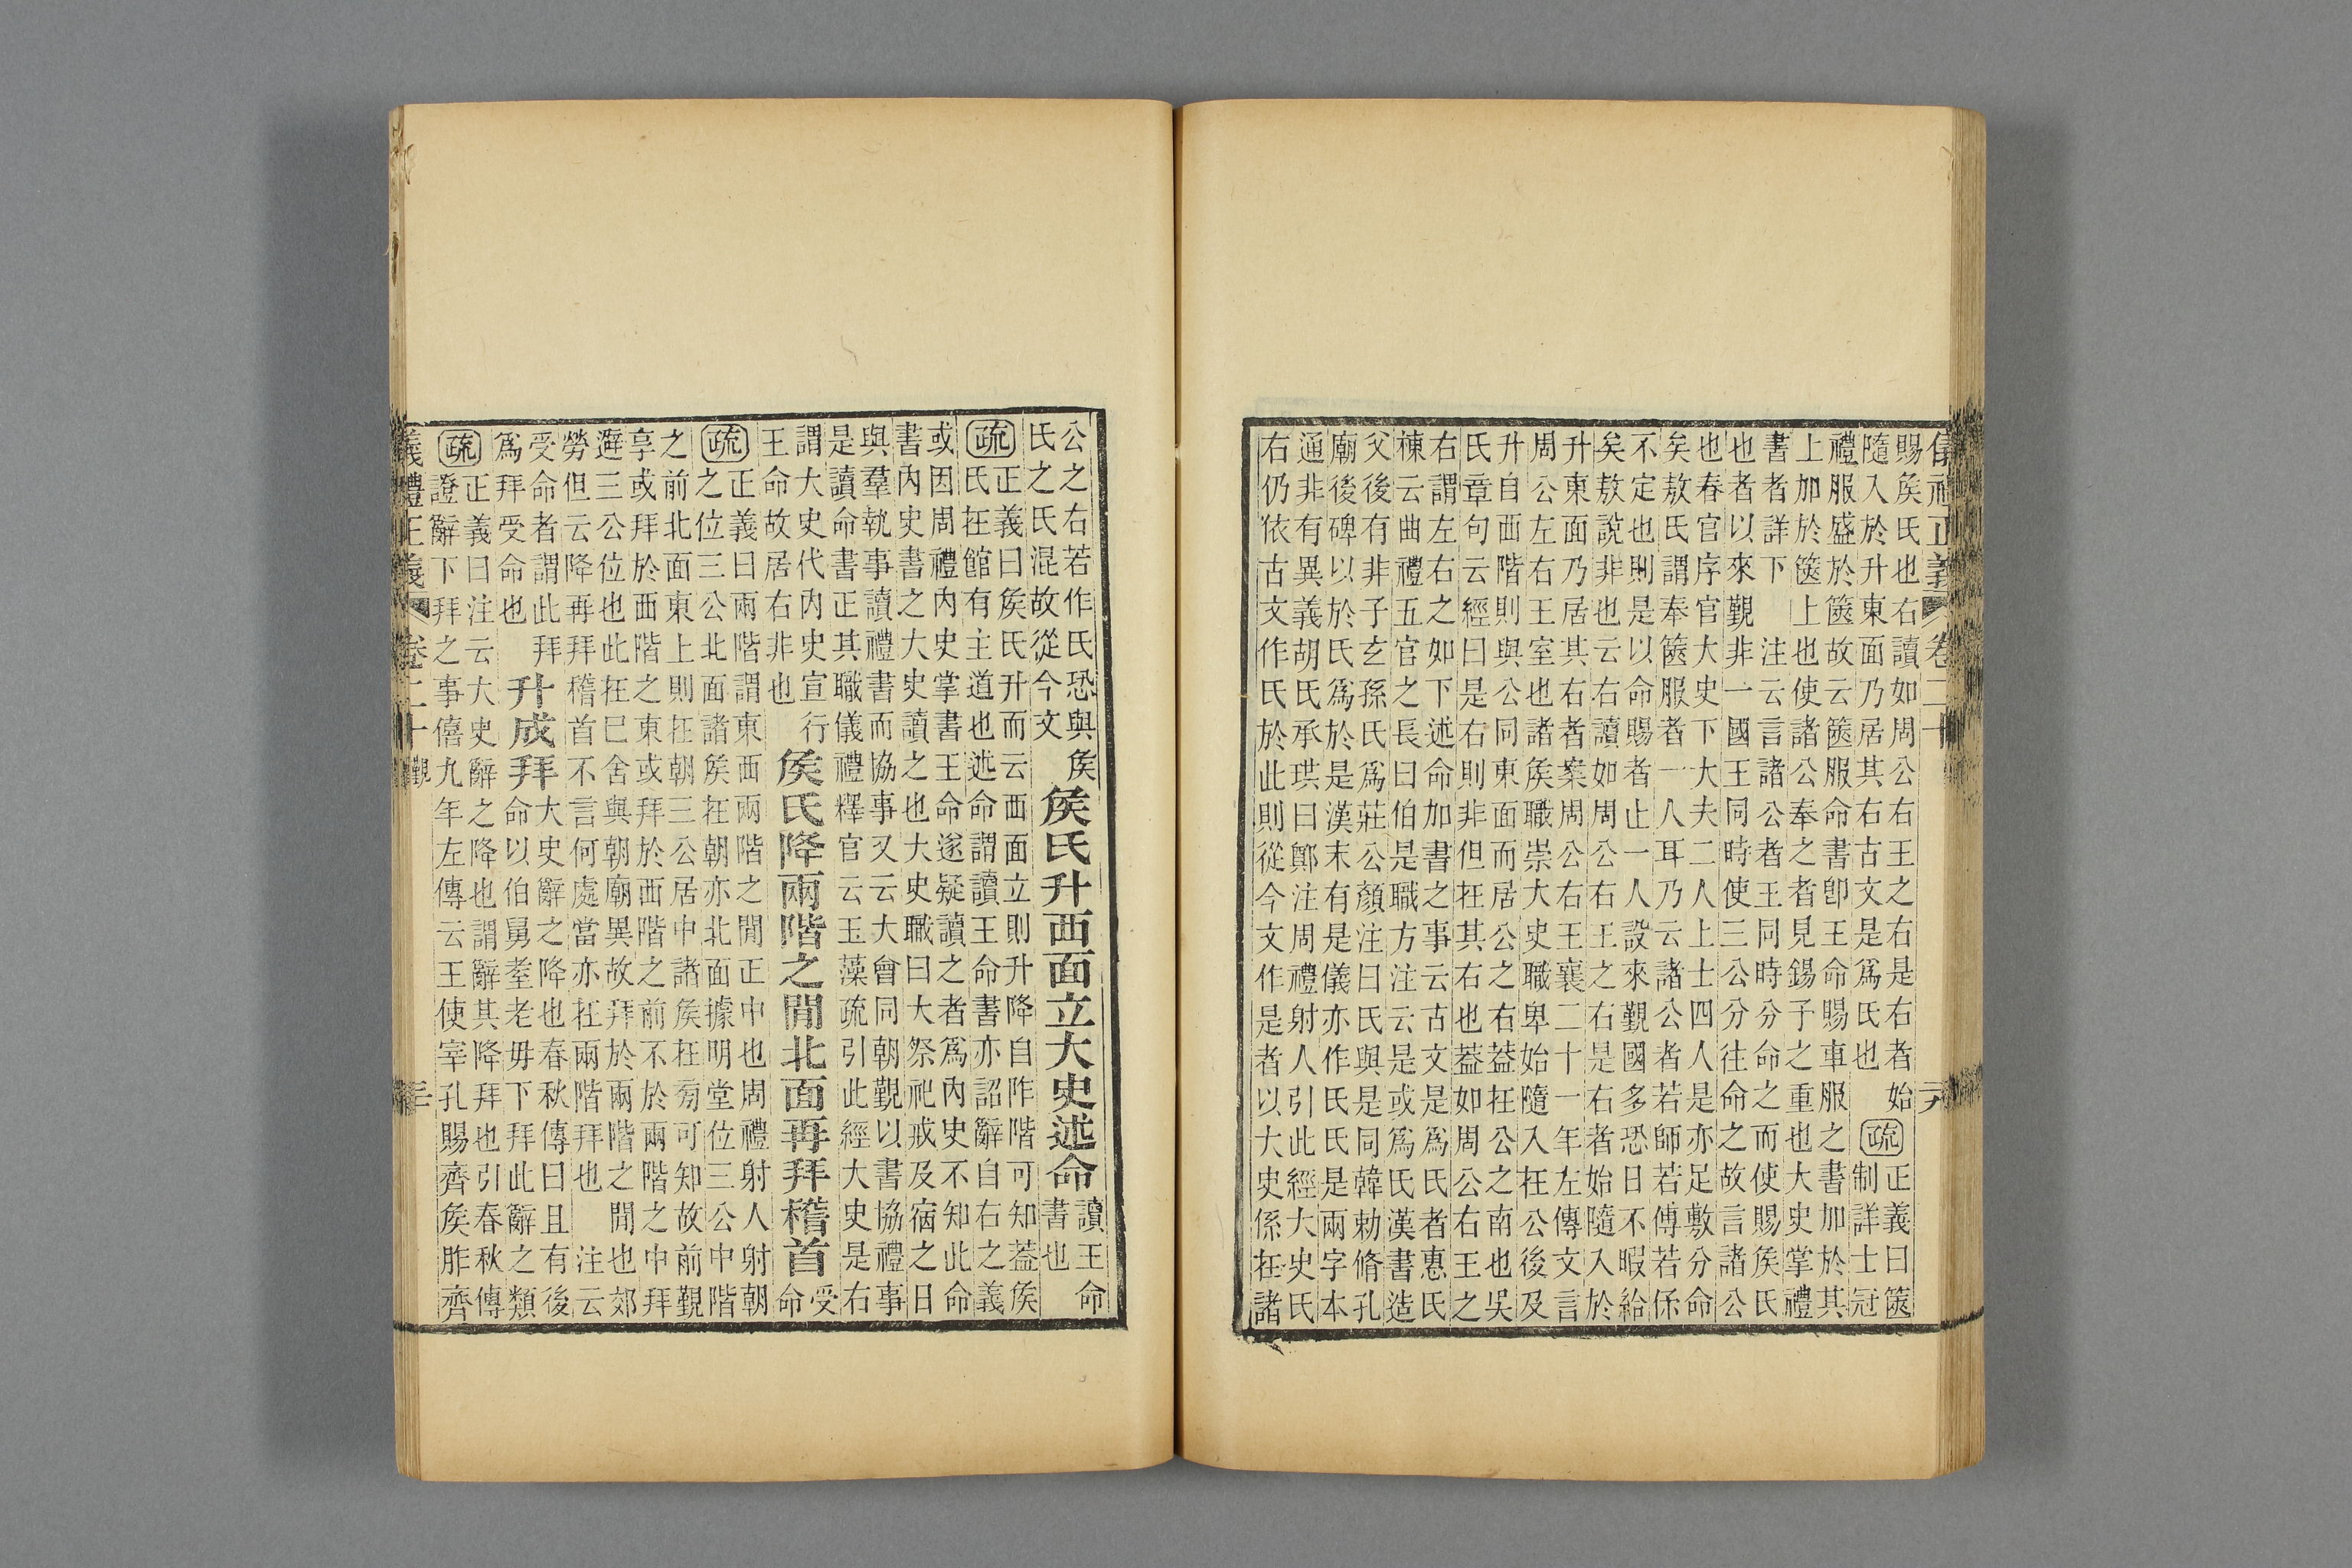 儀禮正義 卷二十 元
賜矦氏也右讀如周公右王之右是右者始
隨入於升東面乃居其右古文是爲氏也
疏
正義曰篋
制詳士冠
禮服盛於篋故云篋服命書卽王命賜車服之書加於其
上加於篋上也使諸公奉之者見錫予之重也大史掌禮
書者詳下 注云言諸公者王同時分命之而使賜矦氏
也者以來覲非一國王同時使三公分往命之故言諸公
也春官序官大史下大夫二人上士四人是亦足敷分命
矦敖氏謂奉篋服者一人耳乃云諸公者若師若傅若保
不定也則是以命賜者止一人設來覲國多恐日不暇給
矣敖說非也云右讀如周公右王之右是右者始隨入於
升東面乃居其右者案周公右王襄二十一年左傳文言
周公左右王室也諸矦職崇大史職卑始隨入在公後及
升自西階則與公同東面而居公之右葢在公之南也吳
氏章句云經曰是右則非但在其右也葢如周公右王之
右謂左右之如下述命加書之事云古文是爲氏者惠氏
棟云曲禮五官之長曰伯是職方注云是或爲氏漢書造
父後有非子玄孫氏爲莊公顏注曰氏與是同韓勅脩孔
廟後碑以於氏爲於是漢末有是儀亦作氏氏是兩字本
通非有異義胡氏承珙曰鄭注周禮射人引此經大史氏
右仍依古文作氏於此則從今文作是者以大史係在諸
公之右若作氏恐與矦
氏之氏混故從今文
矦氏升西面立大史述命
讀王命
書也
疏
正義曰矦氏升而云西面立則升降自阼階可知葢矦
氏在館有主道也述命謂讀王命書亦詔辭自右之義
或因周禮內史掌書王命遂疑讀之者爲內史不知此命
書內史書之大史讀之也大史職曰大祭祀戒及宿之日
與羣執事讀禮書而協事又云大會同朝覲以書協禮事
是讀命書正其職儀禮釋官云玉藻疏引此經大史是右
謂大史代內史宣行
王命故居右非也
矦氏降兩階之閒北面再拜稽首
受
命
疏
正義曰兩階謂東西兩階之閒正中也周禮射人射朝
之位三公北面諸矦在朝亦北面據明堂位三公中階
之前北面東上則在朝三公居中諸矦在旁可知故前覲
享或拜於西階之東或拜於西階之前不於兩階之中拜
遜三公位也此在巳舍與朝廟異故拜於兩階之閒也郊
勞但云降再拜稽首不言何處當亦在兩階拜也 注云
受命者謂此拜
爲拜受命也
升成拜
大史辭之降也春秋傳曰且有後
命以伯舅耋老毋下拜此辭之類
疏
正義曰注云大史辭之降也謂辭其降拜也引春秋傳
證辭下拜之事僖九年左傳云王使宰孔賜齊矦胙齊
義禮正義 卷二十 覲 三